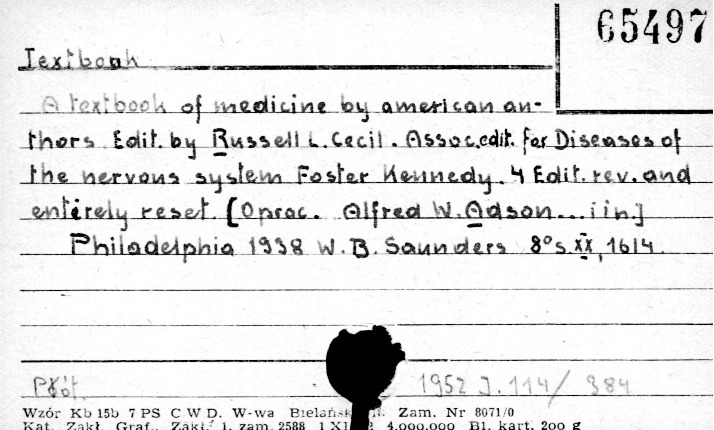 65497
Textbook
A textbook of medicine by american au-
thors Edit. by Russell L. Cecil. Assoc. edit. for Diseases of
the nervous system Foster Kennedy. 4 Edit. rev. and
entirely reset. [Oprac. Alfred W. Adson... i in.]
Philadelphia 1938 W. B. Saunders 8° s. XX, 1614.
Płót. 1952 J. 114/ 384
Wzór Kb 15b 7 PS C W D. W-wa Zam. Nr 8071/0
Kat. Zakł. Graf., Zakł. 1, zam. 2588 4.000.000 Bl. kart. 200 g